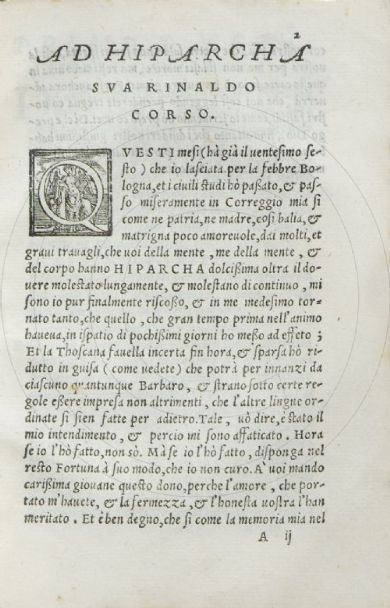 2
AD HIPARCHA
SVA RINALDO
CORSO.
QVESTI mesi (hà già il uentesimo se-
sto) che io lasciata per la febbre Bo-
logna, et i ciuili studi hò passato, & pas-
so miseramente in Correggio mia si
come ne patria, ne madre, così balia, &
matrigna poco amoreuole, dai molti, et
graui trauagli, che uoi della mente, me della mente, &
del corpo hanno HIPARCHA dolcissima oltra il do-
uere molestato lungamente, & molestano di continuo, mi
sono io pur finalmente riscosso, & in me medesimo tor-
nato tanto, che quello, che gran tempo prima nell'animo
haueua, in ispatio di pochissimi giorni ho messo ad effeto;
Et la Thoscana fauella incerta fin hora, & sparsa hò ri-
dutto in guisa (come uedete) che potrà per innanzi da
ciascuno quantunque Barbaro, & strano sotto certe re-
gole essere impresa non altrimenti, che l'altre lingue or-
dinate si sien fatte per adietro. Tale, uò dire, è stato il
mio intendimento, & percio mi sono affaticato. Hora
se io l'hò fatto, non sò. Mà se io l'hò fatto, disponga nel
resto Fortuna à suo modo, che io non curo. A' uoi mando
carissima giouane questo dono, perche l'amore, che por-
tato m'hauete, & la fermezza, & l'honesta uostra l'han
meritato. Et è ben degno, che si come la memoria mia nel
A ij